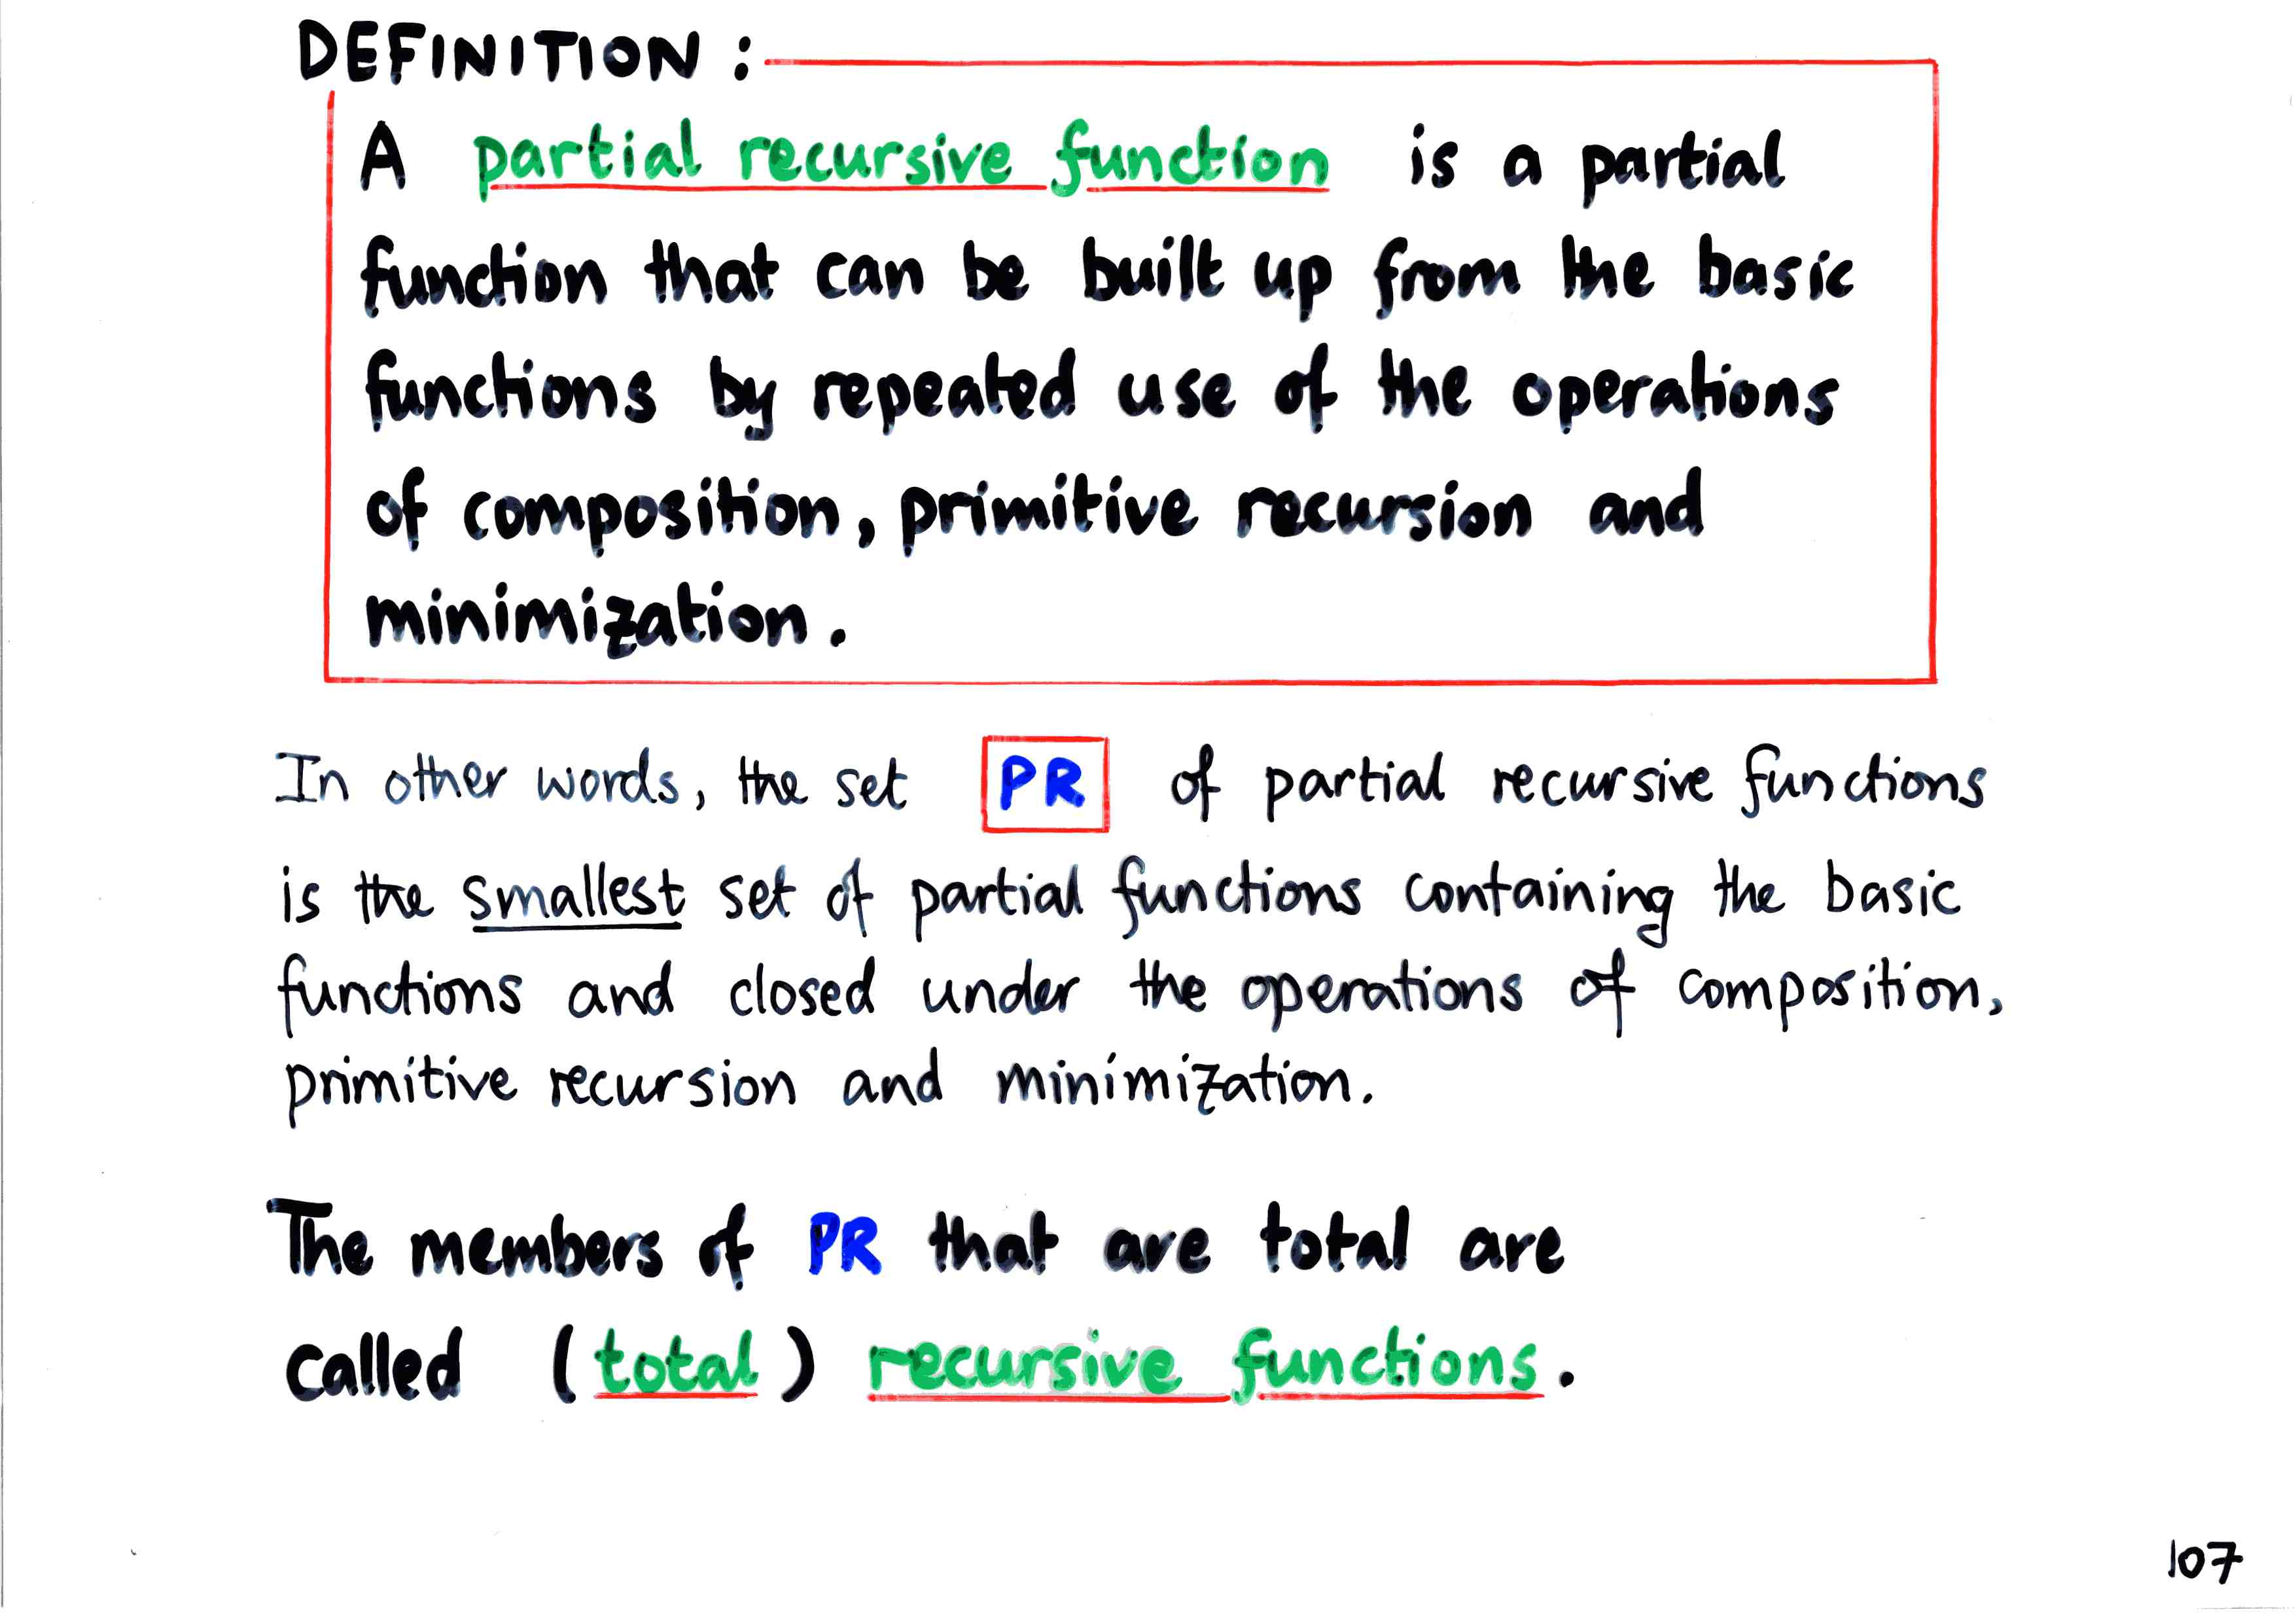 DEFINITION :
A partial recursive function is a partial
function that can be built up from the basic
functions by repeated use of the operations
of composition, primitive recursion and
minimization.
In other words, the set PR of partial recursive functions
is the smallest set of partial functions containing the basic
functions and closed under the operations of composition,
primitive recursion and minimization.
The members of PR that are total are
called (total) recursive functions.
107